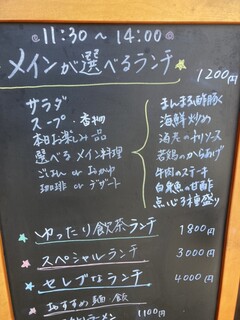 11:30 ~ 14:00
メインが選べるランチ
1200円
サラダ
スープ・香物
本日お楽しみ品
選べるメイン料理
ごはん or おかゆ
珈琲 or デザート
まんまる酢豚
海鮮炒め
海老のチリソース
若鶏のからあげ
牛肉のステーキ
白身魚の甘酢
点心3種盛り
ゆったり飲茶ランチ 1800円
スペシャルランチ 3000円
セレブなランチ 4000円
おすすめ麺・飯
ラーメン 1100円